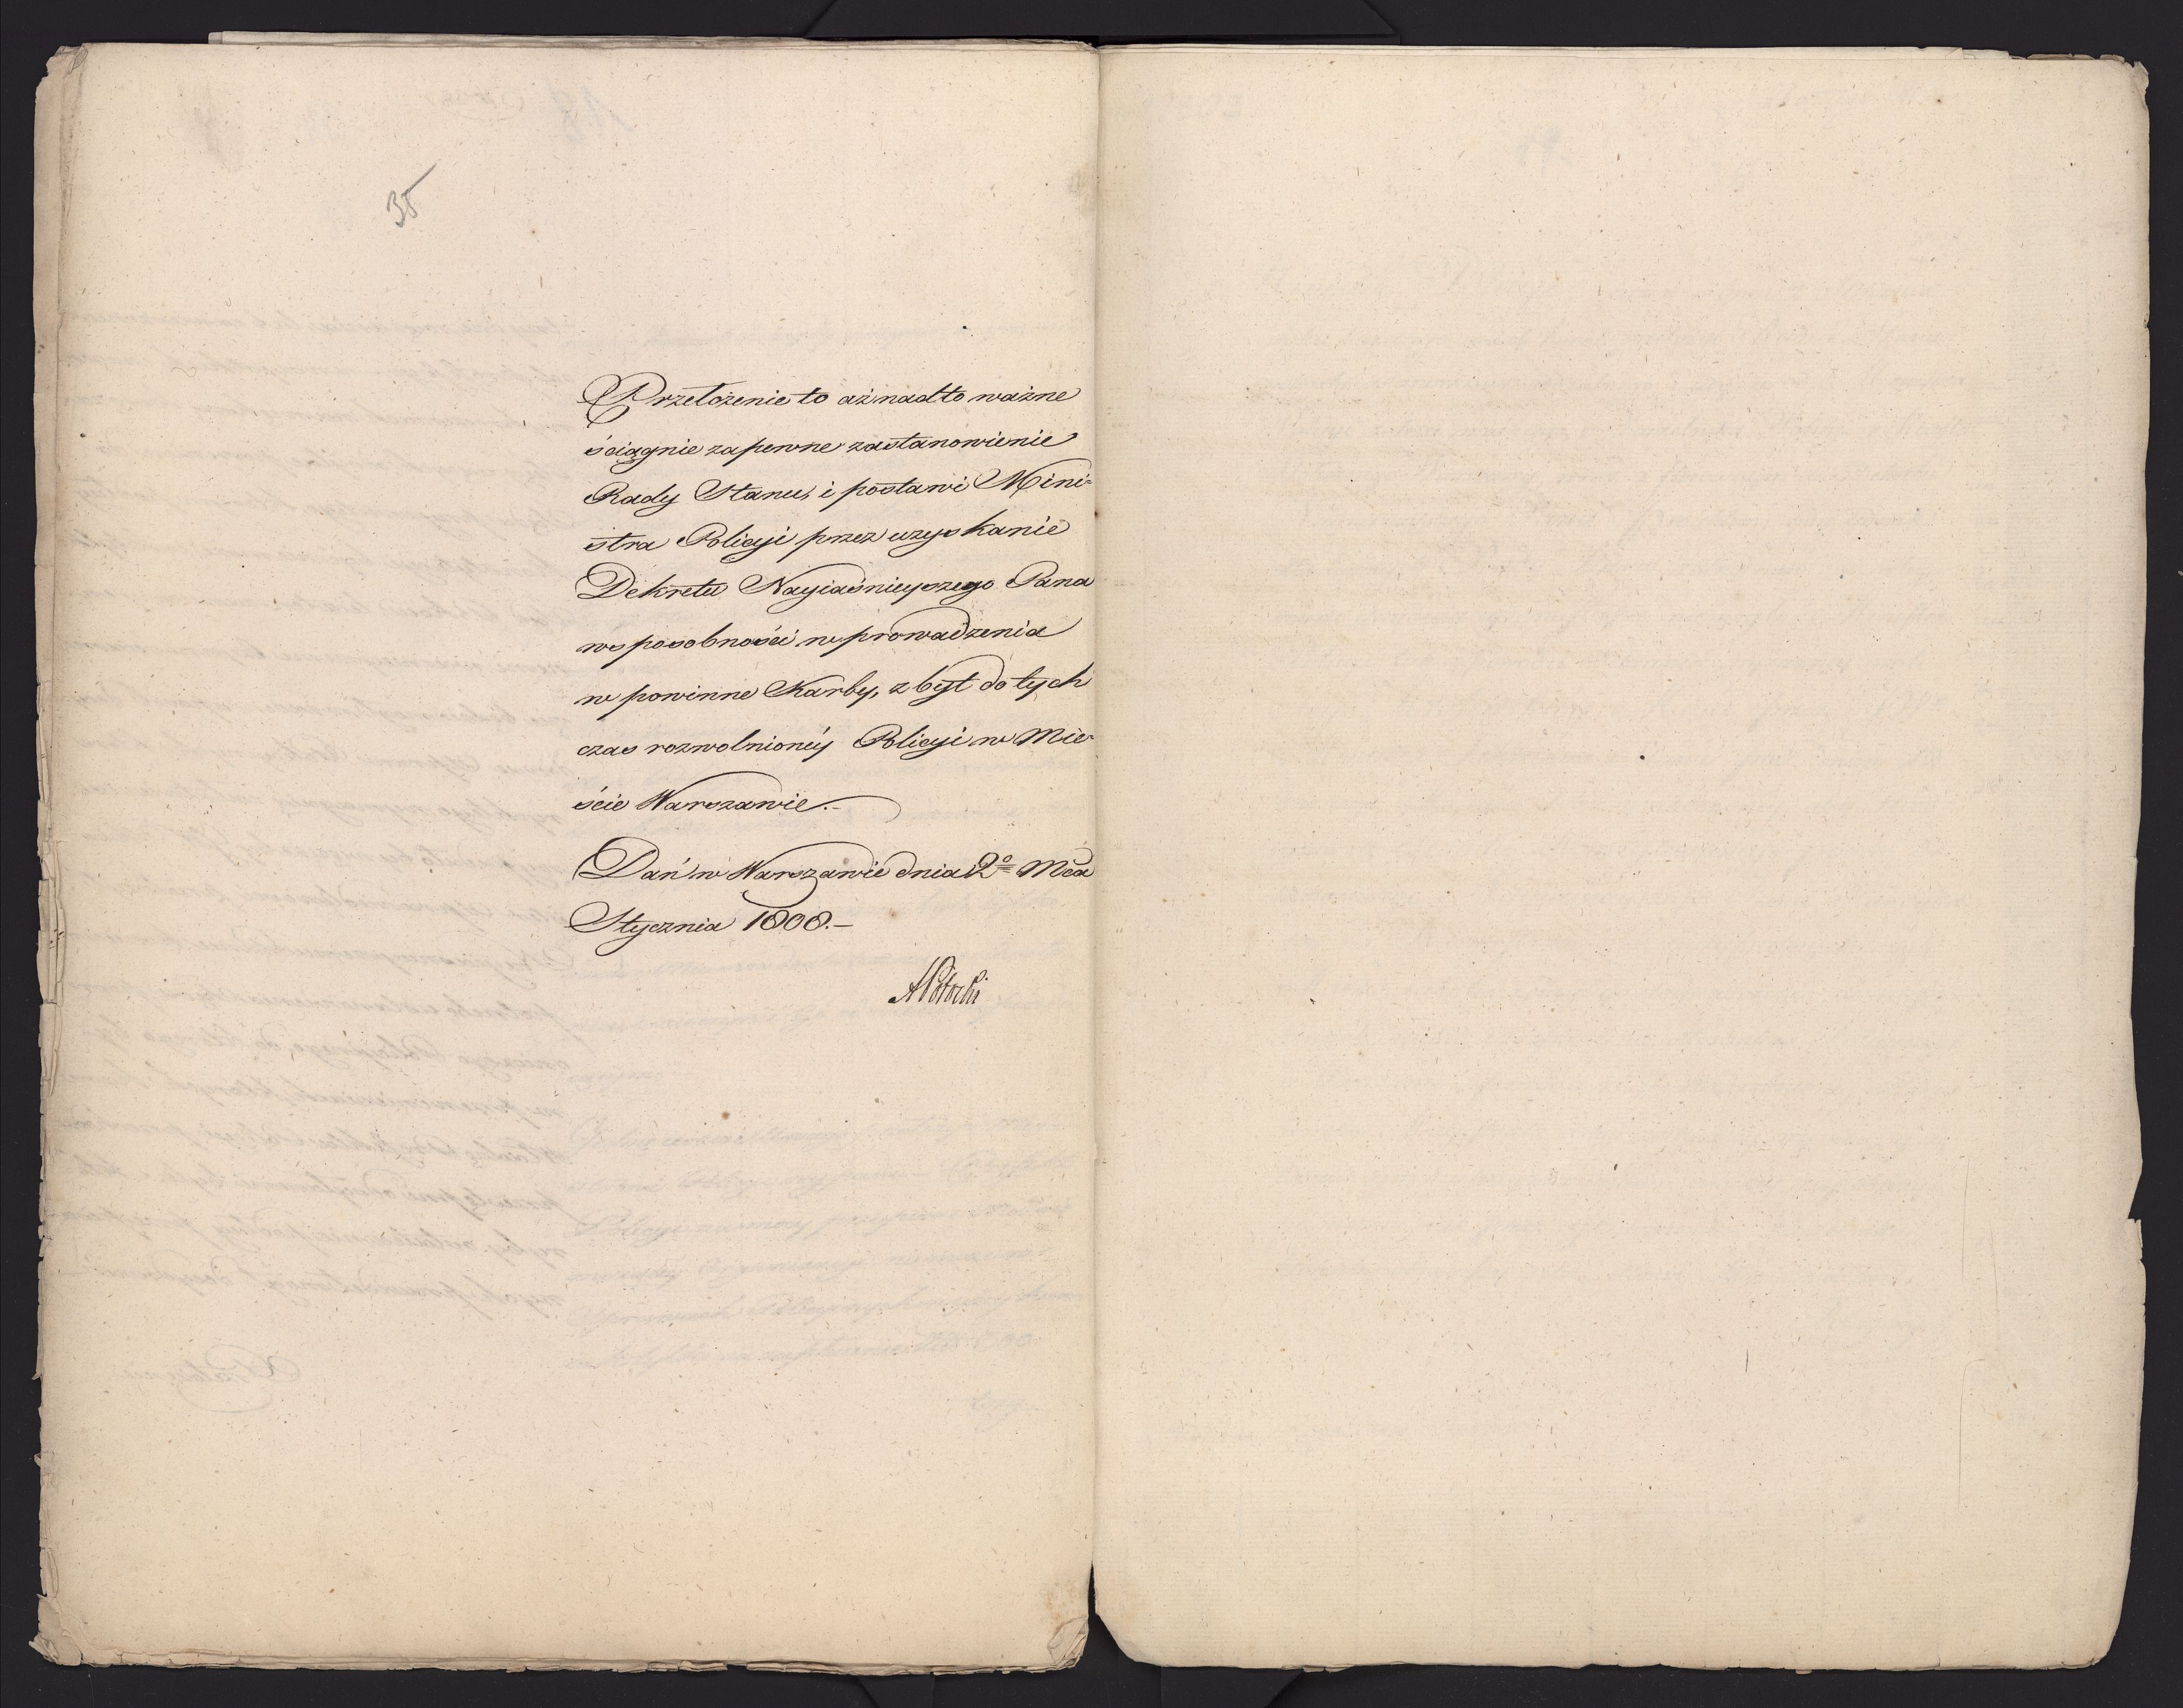 35
Przełożenie to aż nadto ważne
ściągnie zapewne zastanowienie
Rady Stanu, i postawi Mini=
stra Policyi przez uzyskanie
Dekretu Nayiaśnieyszego Pana
w sposobności wprowadzenia
w powinne Karby, zbyt do tych
czas rozwolnionéy Policyi w Mie-
ście Warszawie.-
Dań w Warszawie dnia 2º Mca
Stycznia 1808.-
APotocki